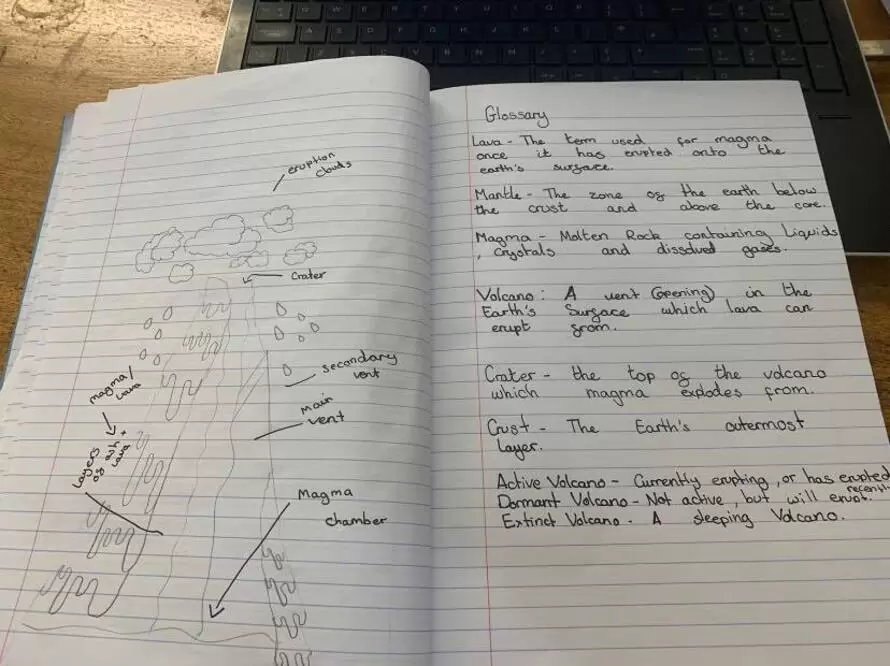 eruption
clouds
Crater
secondary
vent
main
vent
magma/
lava
layers
of ash +
lava
Magma
chamber
Glossary
Lava - The term used for magma
once it has erupted onto the
earth's surface.
Mantle - The zone of the earth below
the crust and above the core.
Magma - Molten Rock containing Liquids
, crystals and dissolved gases.
Volcano : A vent (opening) in the
Earth's Surface which lava can
erupt from.
Crater - the top of the volcano
which magma explodes from.
Crust - The Earth's outermost
Layer.
Active Volcano - Currently erupting, or has erupted
recently
Dormant Volcano - Not active, but will erupt.
Extinct Volcano - A sleeping Volcano.